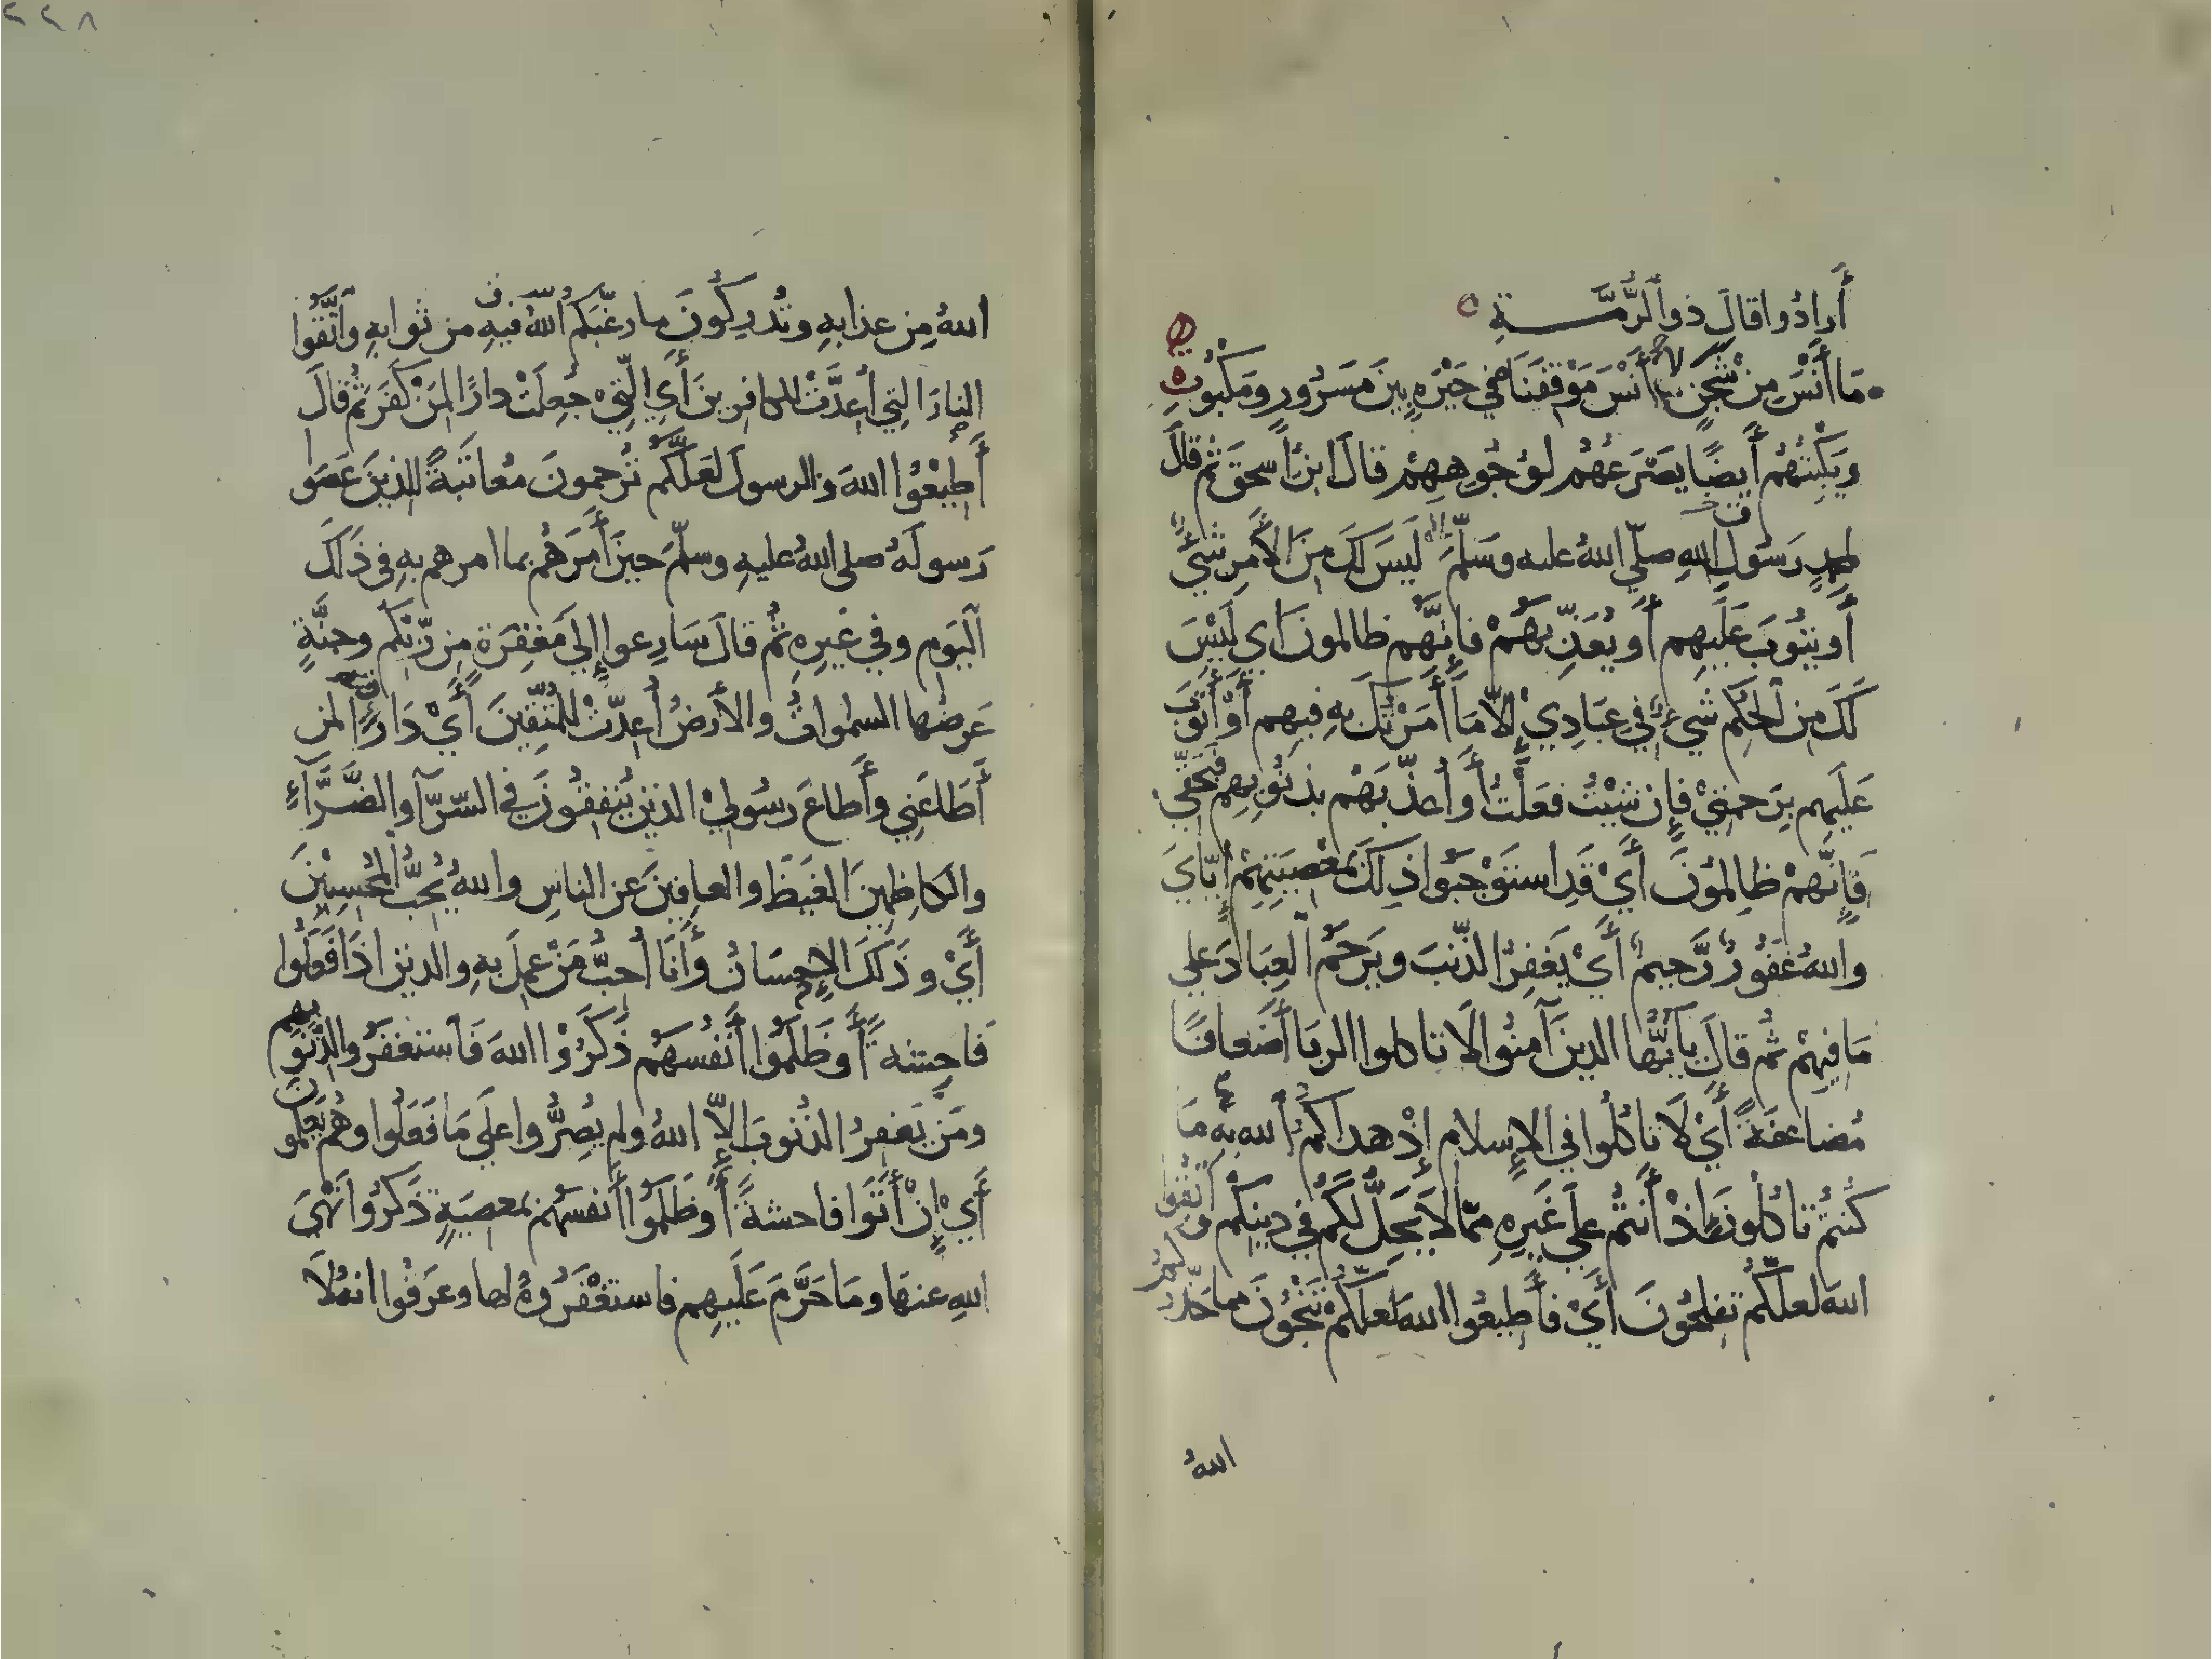 أَرادُوا قالَ ذو الرُّمَّــــةِ
مَا أَنْسَ مِنْ شَجَنٍ لا أَنْسَ مَوْقِفَنَا في حَيْرَةٍ بينَ مَسرُورٍ ومَكْبُوتِ
وَيَكْبِتُهُم أَيضًا يَصْرَعُهُم لوُجُوهِهِمْ قالَ ابنُ اسحقَ ثم قالَ
لمحمدٍ رَسُولِ اللهِ صلّي اللهُ عليه وسَلّمَ لَيسَ لَكَ مِنَ الأَمرِ شَيْءٌ
أَو يتُوبَ عَلَيهِم أَو يُعَذِّبَهُمْ فإِنَّهُم ظالمونَ اي لَيْسَ
لَكَ مِن الحُكمِ شيءٌ في عِبَادِيْ إِلاّ مَا أَمَرْتُكَ بِهِ فِيهِم أَوْ أَتُوبَ
عَلَيهِم بِرَحمتِيْ فإِن شِيْتُ فعَلْتُ أَو أُعذِّبَهُم بذنُوبِهِم فَبحقّي
فَإِنَّهُمْ ظَالِمُونَ أَيْ قَدِ استَوْجَبُوا ذلِكَ بمَعْصِيَتِهِمْ إِيَّايَ
واللهُ غَفُورٌ رَّحيمٌ أَيْ يَغفِرُ الذّنبَ ويَرحَمُ العِبَادَ علي
مَا فِيهِمْ ثُم قالَ يأَيُّها الذينَ آمنُوا لَا تاكلوا الربَا أَضعافًا
مُضاعفةً أَيْ لَا تاكُلُوا في الإِسلامِ إِذْ هداكُمُ اللهُ بِهِ مَا
كُنتُمْ تاكُلُونَ إِذْ أَنتُم علي غَيرِهِ مِمّا لَا يَحِلُّ لَكُمْ في دِينِكُم واتّقوا
اللهَ لعلّكُم تفلحُونَ أَيْ فأَطيعُوا اللهَ لعلّكُمْ تَنْجُونَ مما حَذّركُم
اللهُ
٢٢٨
اللهُ مِن عذابِهِ وتُدرِكُونَ ما رغّبَكم اللهُ فيهِ من ثوابِهِ واتَّقُوا
النارَ التِي أُعدَّتْ للكافرينَ أَيِ الّتِيْ جُعِلَتْ دارًا لمَنْ كَفَرَ ثم قالَ
أَطِيْعُوا اللهَ والرسولَ لعَلَّكُم تُرحمونَ مُعاتَبةً للذينَ عَصَوا
رَسولَهُ صلى اللهُ عليهِ وسلّمَ حينَ أَمَرَهُم بما امرهم بهِ في ذَلكَ
اليَومِ وفي غَيرِهِ ثُم قالَ سَارِعوا إِلي مَغفِرَةٍ مِن رّبّكم وجنّةٍ
عَرضُها السمواتُ والأَرضُ أُعِدّتْ للمُتّقِينَ أَيْ دَارًا لمن
أَطَاعَنِي وأَطاعَ رسُولِيْ الذين يُنفِقُونَ في السّرّآ والضَّرَّآءِ
والكاظِمِينَ الغَيظَ والعافِينَ عنِ الناسِ واللهُ يُحِبُّ المُحْسِنِينَ
أَيْ وذَلكَ الإِحسَانُ وأَنَا أُحِبُّ مَنْ عَمِلَ بهِ والذينَ اذَا فَعَلُوا
فاحِشةً أَو ظَلَمُوا أَنفُسَهُم ذَكَرُوْا اللهَ فَاستغفرُوا لذُنُوبِهِم
ومَن يَغفِرُ الذُنُوبَ إِلاّ اللهُ ولم يُصِرُّوا علَي مَا فَعَلُوا وهُم يَعلَمونَ
أَيْ إِنْ أَتَوا فاحشةً أَو ظَلَمُوا أَنفسَهُم بمعصِيَةٍ ذَكَرُوا نَهْيَ
اللهِ عنهَا ومَا حَرَّمَ عَلَيهِم فاستَغْفَرُوهُ لها وعرَفُوا انهُ لَا